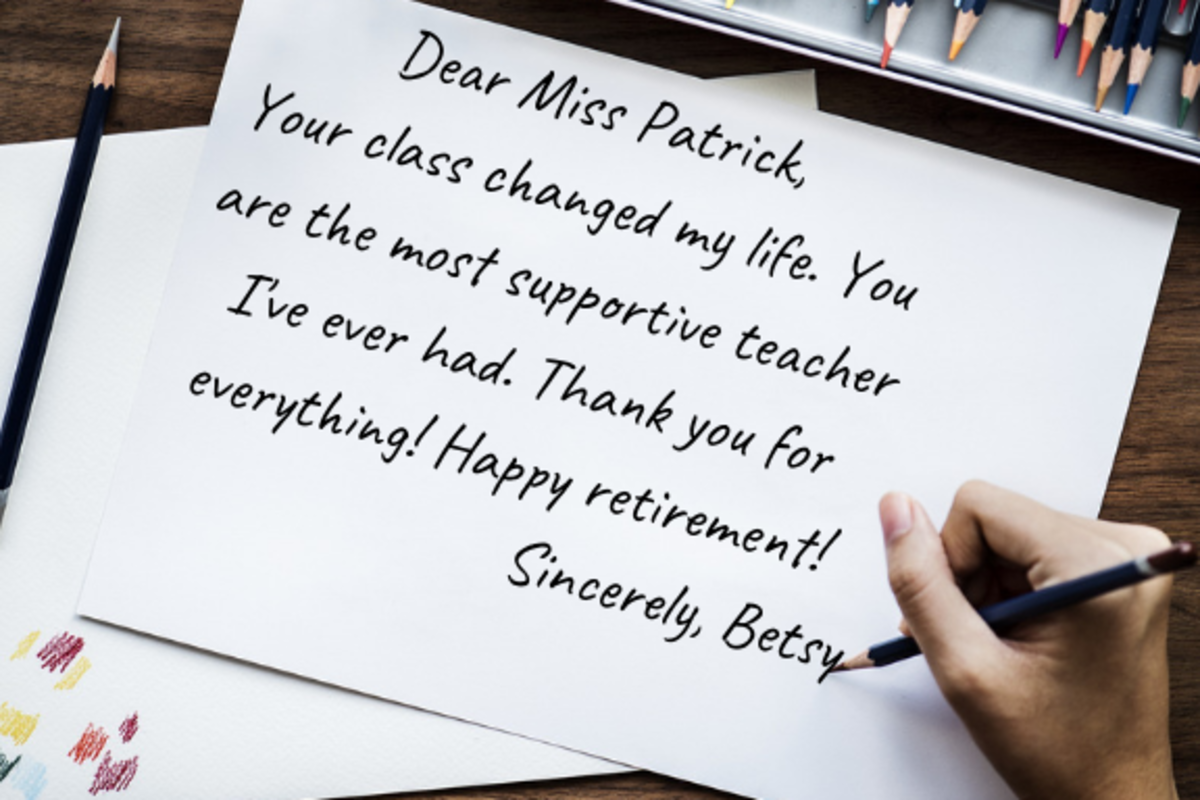 Dear Miss Patrick,
Your class changed my life. You
are the most supportive teacher
I've ever had. Thank you for
everything! Happy retirement!
Sincerely, Betsy